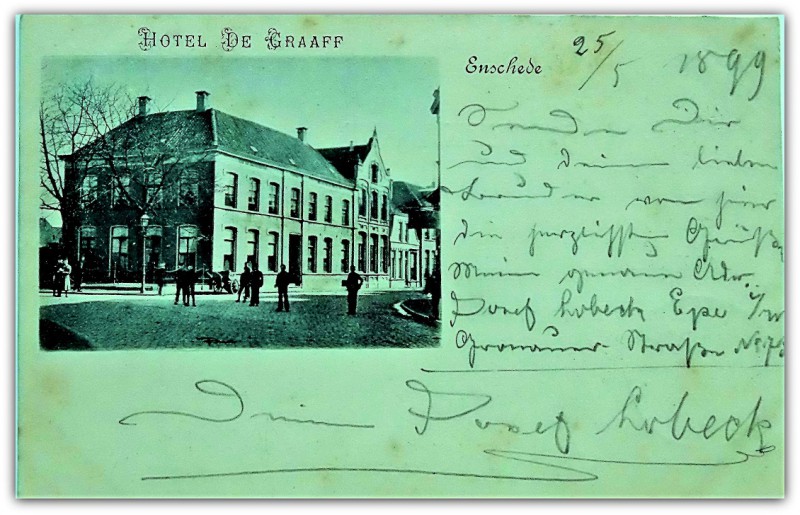 HOTEL DE GRAAFF
Enschede
25/5 1899
Sende Dir
und deinen lieben
Bruder von hier
die herzlichsten Grüße
Meine genaue Adr.
Josef Lobeck Epe i/w
Gronauer Straße No 73
Dein Josef Lobeck